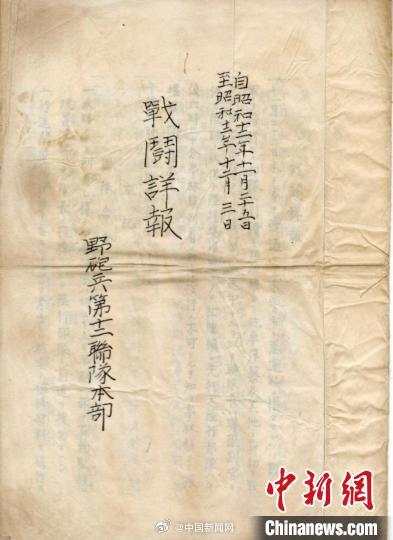 自昭和十二年十一月二十五日
至昭和十二年十二月三日
戰鬪詳報
野砲兵第十二聯隊本部
中新网
Chinanews.com
@中国新闻网